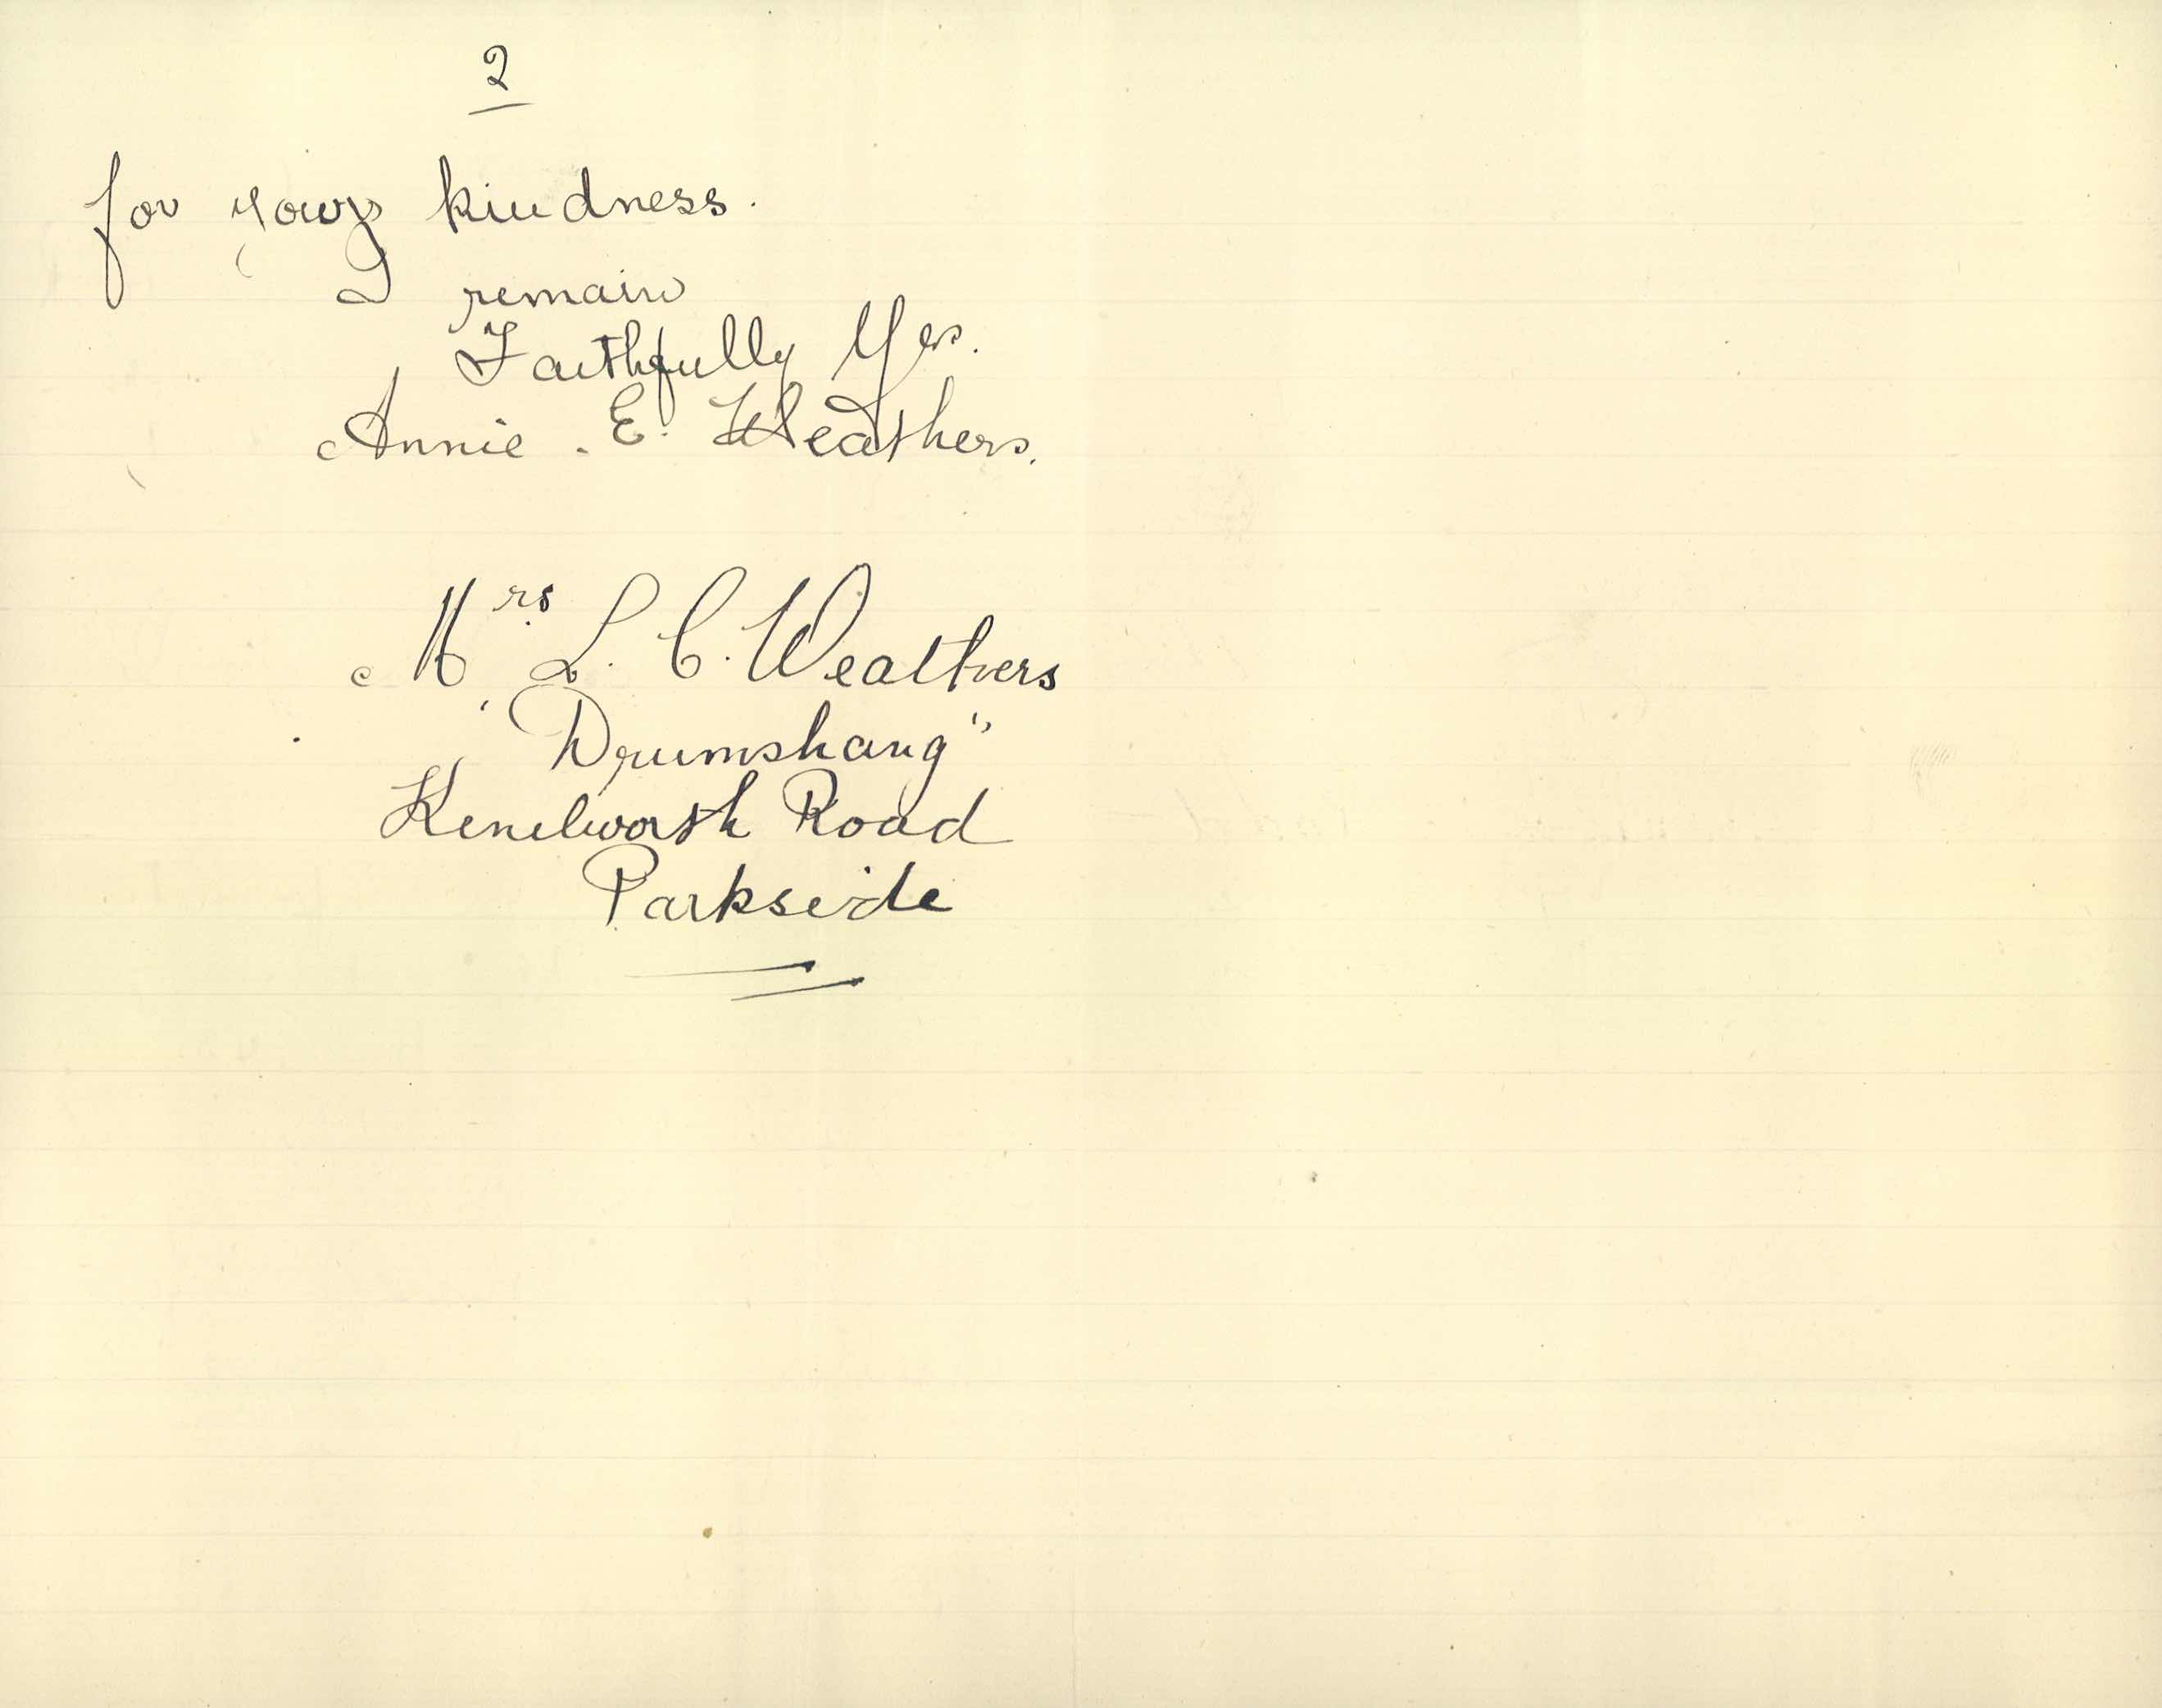 2
for your kindness.
I remain
Faithfully Yrs.
Annie. E. Weathers.
Mrs. L. C. Weathers
"Drumshang"
Kenilworth Road
Parkside